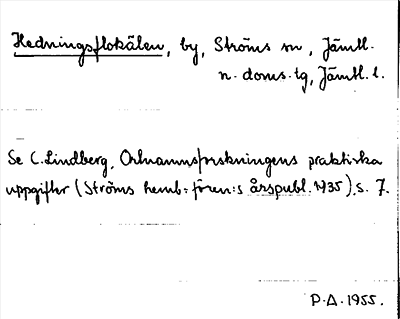 Hedningsflokälen, by, Ströms sn, Jämtl.
n. doms. tg, Jämtl. l.
Se C. Lindberg, Ortnamnsforskningens praktiska
uppgifter (Ströms hemb:fören:s årspubl. 1935), s. 7.
P. A. 1955.